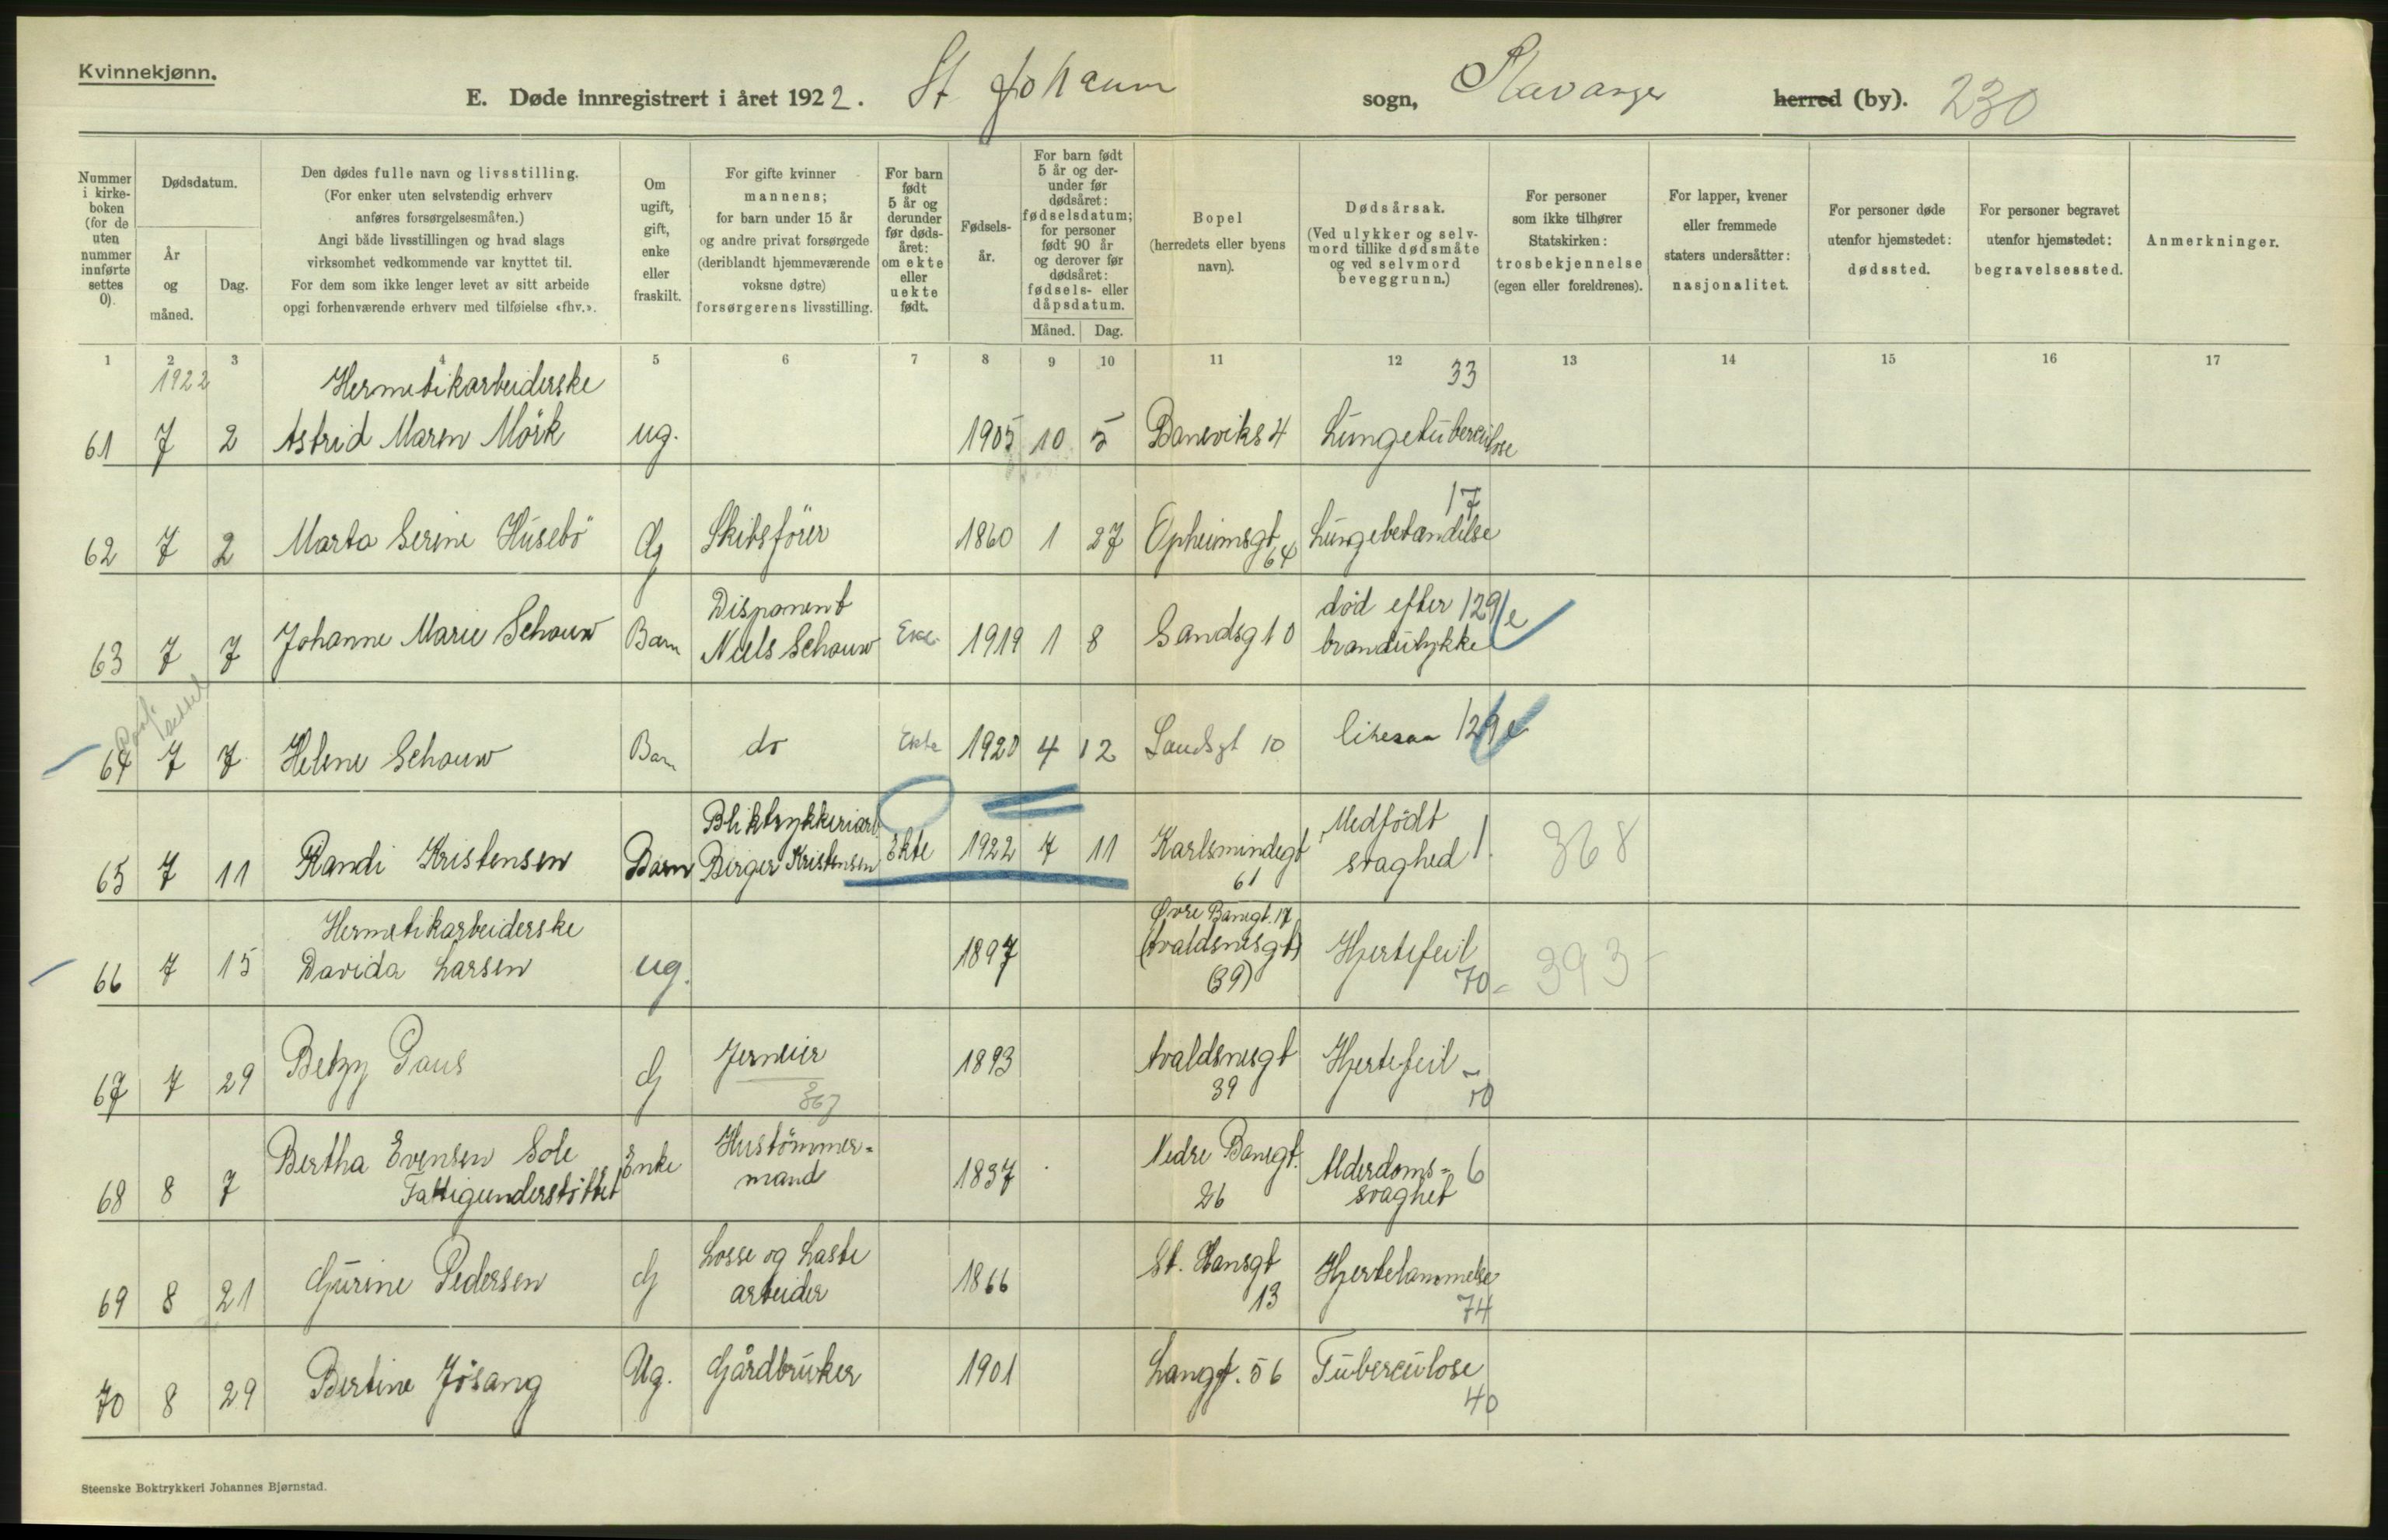 Kvinnekjønn.
E. Døde innregistrert i året 1922. St Johannes sogn, Stavanger herred (by). 230
Nummer i kirkeboken (for de uten nummer innførte settes 0).
Dødsdatum.
År og måned.
Dag.
Den dødes fulle navn og livsstilling.
(For enker uten selvstendig erhverv anføres forsørgelsesmåten.)
Angi både livsstillingen og hvad slags virksomhet vedkommende var knyttet til.
For dem som ikke lenger levet av sitt arbeide opgi forhenværende erhverv med tilføielse «fhv.».
Om ugift, gift, enke eller fraskilt.
For gifte kvinner mannens; for barn under 15 år og andre privat forsørgede (deriblandt hjemmeværende voksne døtre) forsørgerens livsstilling.
For barn født 5 år og derunder før dødsåret: om ekte eller uekte født.
Fødselsår.
For barn født 5 år og derunder før dødsåret: fødselsdatum; for personer født 90 år og derover før dødsåret: fødsels- eller dåpsdatum.
Måned. Dag.
Bopel (herredets eller byens navn).
Dødsårsak.
(Ved ulykker og selvmord tillike dødsmåte og ved selvmord beveggrunn.)
For personer som ikke tilhører Statskirken: trosbekjennelse (egen eller foreldrenes).
For lapper, kvener eller fremmede staters undersåtter: nasjonalitet.
For personer døde utenfor hjemstedet: dødssted.
For personer begravet utenfor hjemstedet: begravelsessted.
Anmerkninger.
1 2 3 4 5 6 7 8 9 10 11 12 13 14 15 16 17
1922 Hermetikarbeiderske 33
61 7 2 Astrid Maren Mörk ug. 1905 10 5 Baneviks 4 Lungetuberculose
17
62 7 2 Marta Serine Husebö G Skibsförer 1860 1 27 Opheimsgt 64 Lungebetændelse
Disponent død efter 129e
63 7 7 Johanne Marie Schouw Barn Niels Schouw Ekte 1919 1 8 Sandsg 10 brandulykke
64 7 7 Helene Schouw Barn do Ekte 1920 4 12 Sandsgt 10 likesaa 129e
Bliktrykkeriarb. Medfödt
65 7 11 Randi Kristensen Barn Birger Kristensen Ekte 1922 7 11 Karlsmindegt 61 svaghed 1. 368
Hermetikarbeiderske Øvre Banegt. 17
66 7 15 Davida Larsen ug. 1897 (Avaldsnesgt 39) Hjertefeil 70 - 393 -
67 7 29 Betzy Paus G Jerneier 1893 Avaldsnesgt 39 Hjertefeil - 70
867
68 8 7 Bertha Evensen Sole Enke Hustömmer= 1837 Nedre Banegt. 26 Alderdoms= 6
Fattigunderstöttet mand svaghet
69 8 21 Gurine Pedersen G Losse og Laste arbeider 1866 St. Hansgt 13 Hjertelammelse 74
70 8 29 Bertine Jösang Ug. Gårdbruker 1901 Langgt. 56 Tuberculose 40
Steenske Boktrykkeri Johannes Bjørnstad.